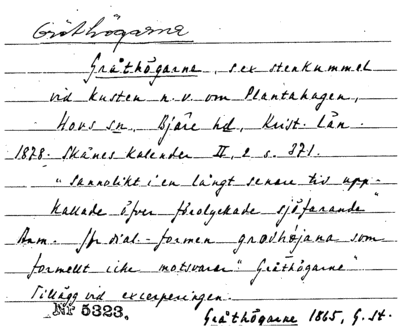 Gråthögarne
Gråthögarne, sex stenkummel
vid kusten n.v. om Plantahagen,
Hovs sn, Bjäre hd, Krist. län.
1878. Skånes kalender II, 2 s. 371.
"sannolikt i en långt senare tid upp-
kallade öfver förolyckade sjöfarande"
Anm. Jfr dial-formen gravhøjana som
formellt icke motsvarar "Gråthögarne"
Tillägg vid excerperingen.
Nr 5323.
Gråthögarne 1865, G. St.